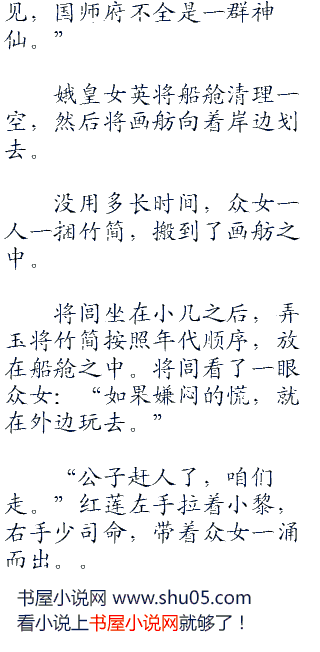 见，国师府不全是一群神
仙。”
娥皇女英将船舱清理一
空，然后将画舫向着岸边划
去。
没用多长时间，众女一
人一捆竹简，搬到了画舫之
中。
将闾坐在小几之后，弄
玉将竹简按照年代顺序，放
在船舱之中。将闾看了一眼
众女：“如果嫌闷的慌，就
在外边玩去。”
“公子赶人了，咱们
走。”红莲左手拉着小黎，
右手少司命，带着众女一涌
而出。。
书屋小说网 www.shu05.com
看小说上书屋小说网就够了！